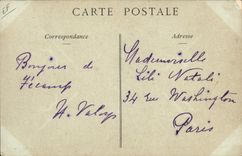 CARTE POSTALE
Correspondance
Adresse
Bonjour de
Fécamp
H. Valoys
Mademoiselle
Lili Natali
34 rue Washington
Paris